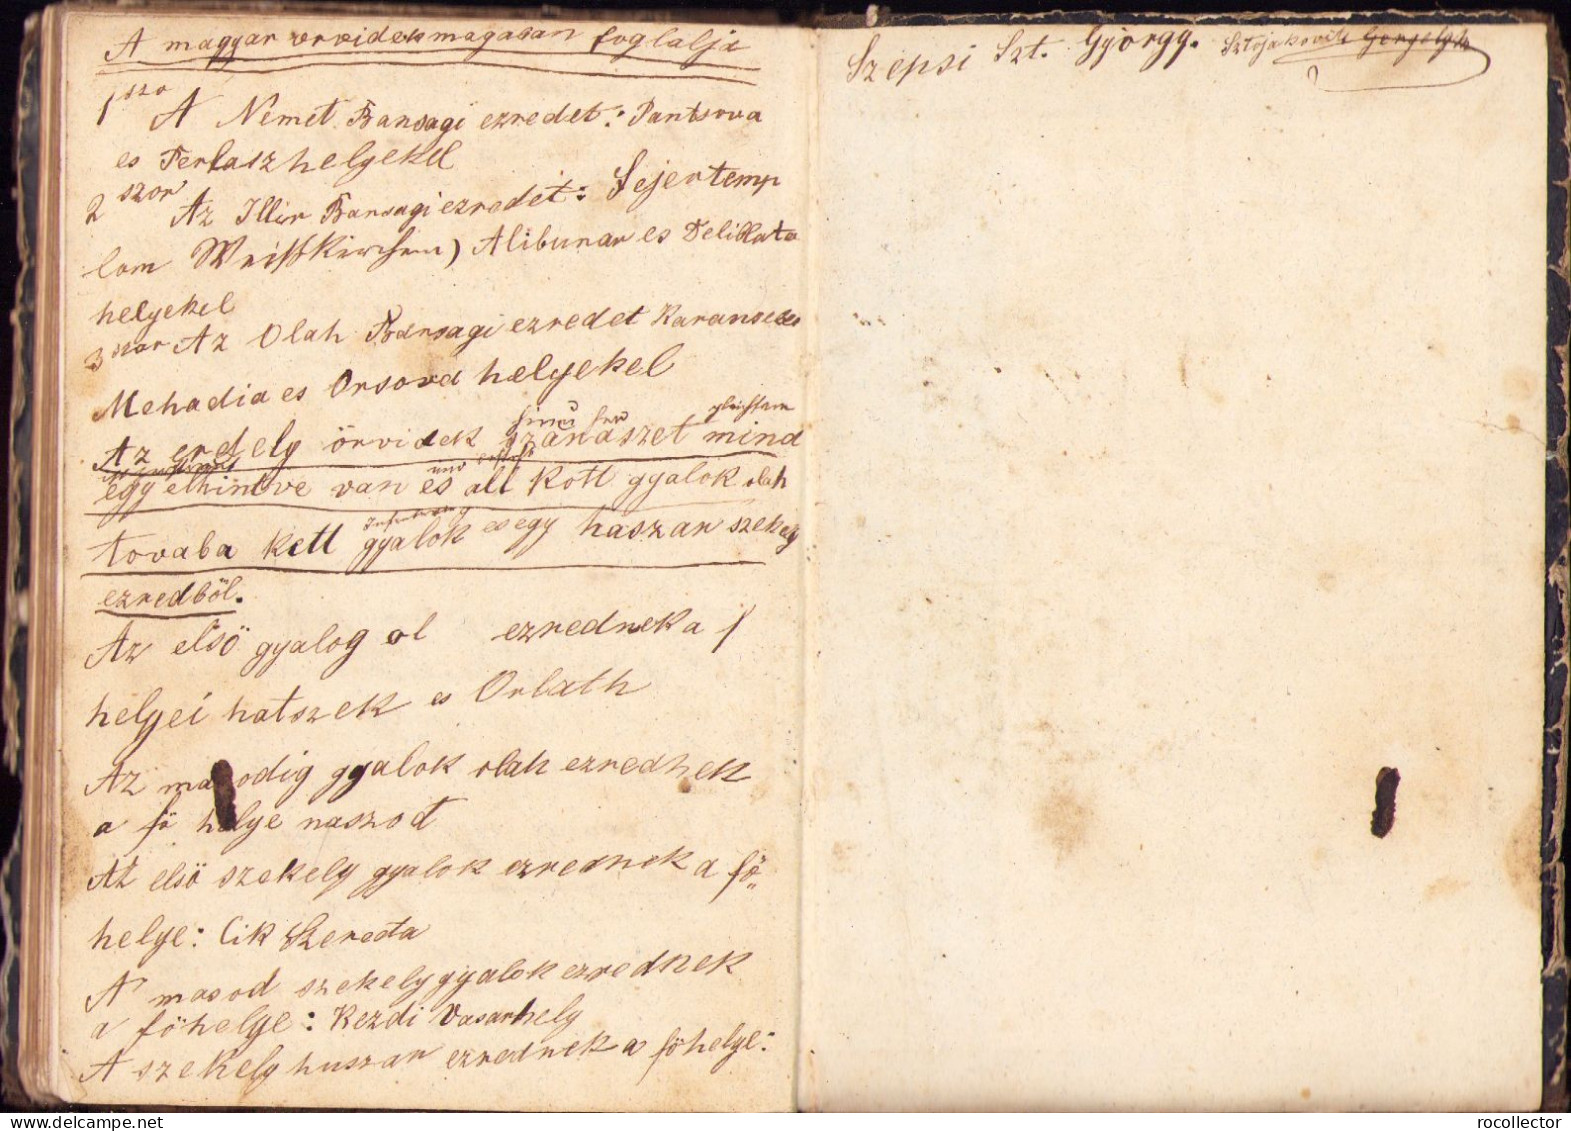 A magyar orvidek magasan foglalja
1szo A Nemet Bansagi ezredet: Pantsova
es Perlasz helyekel
2szor Az Illir Bansagi ezredet: Fejertemp
lom Weißkirchen) Alibunar es Deliblata
helyekel
3szor Az Olah Bansagi ezredet Karansebes
Mehadia es Orsova helyekel
gleichsam
Az erdely örvidek szanaszet mind
und besteht
egy elhintve van es all kott gyalok olah
tovaba kett gyalok es egy haszar szekely
ezredböl.
Az elsö gyalog ol ezredneka f
helyei hatszek es Orlath
Az masodig gyalok olah ezrednek
a fö helye naszod
Az elsö szekely gyalok ezrednek a fö„
helye: Cik Szereda
A masod szekely gyalok ezrednek
a föhelye: Kezdi Vasarhely
A szekely huszar ezrednek a föhelye:
Szepsi Szt. György. Sztojakovits
rocollector